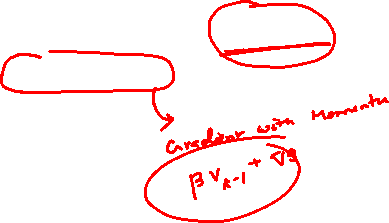 Gradient with Momentu
β V_{k-1} + ∇g